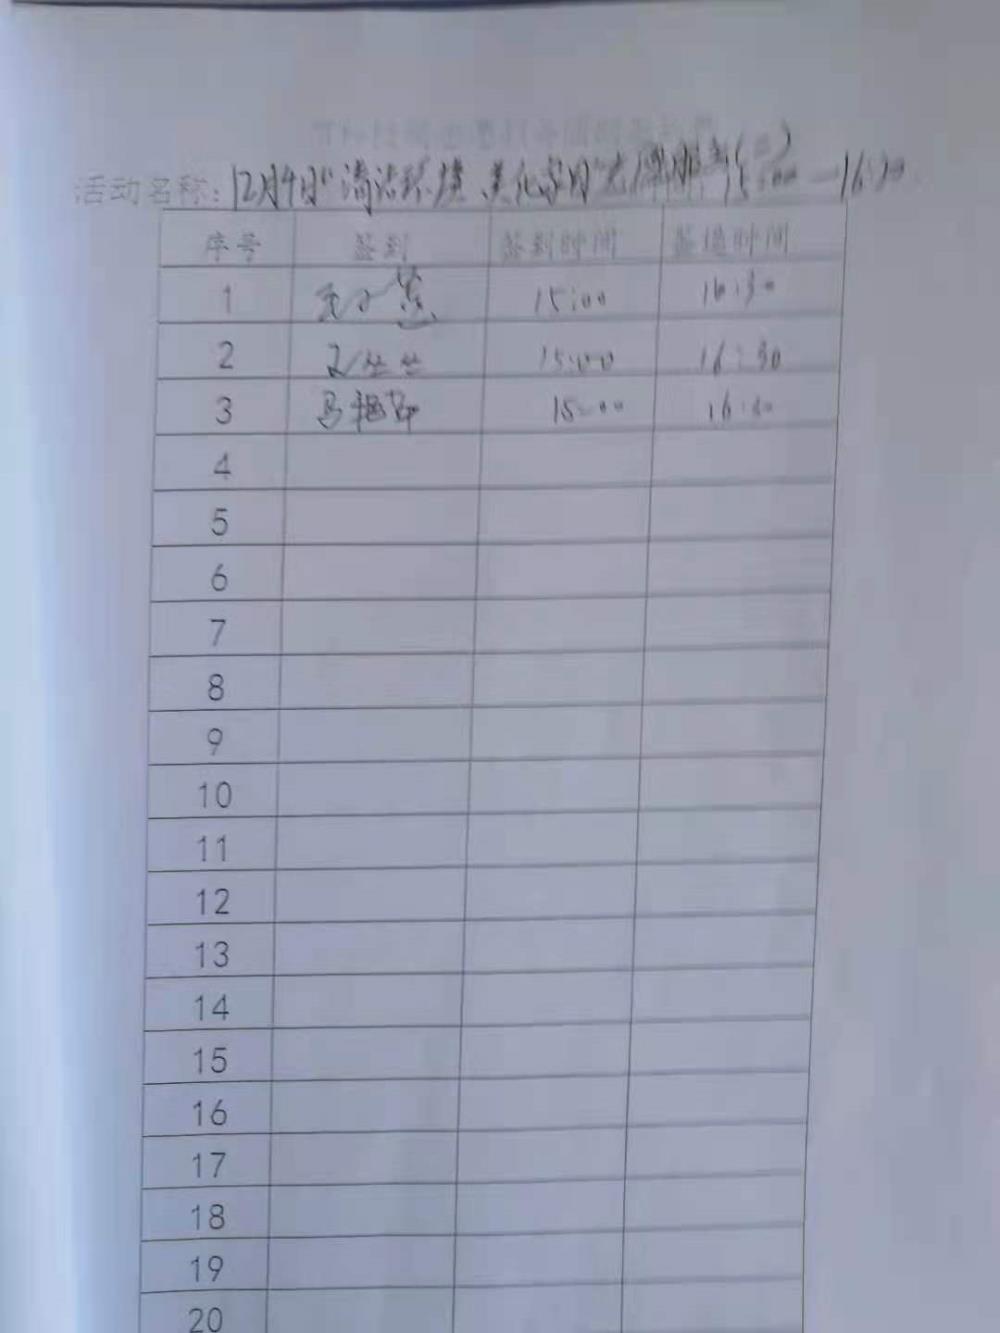 活动名称:12月4日"清洁环境 美化家园"志愿服务(二) 15:00—16:30
序号 签到 签到时间 签退时间
1 15:00 16:30
2 15:00 16:30
3 15:00 16:30
4
5
6
7
8
9
10
11
12
13
14
15
16
17
18
19
20